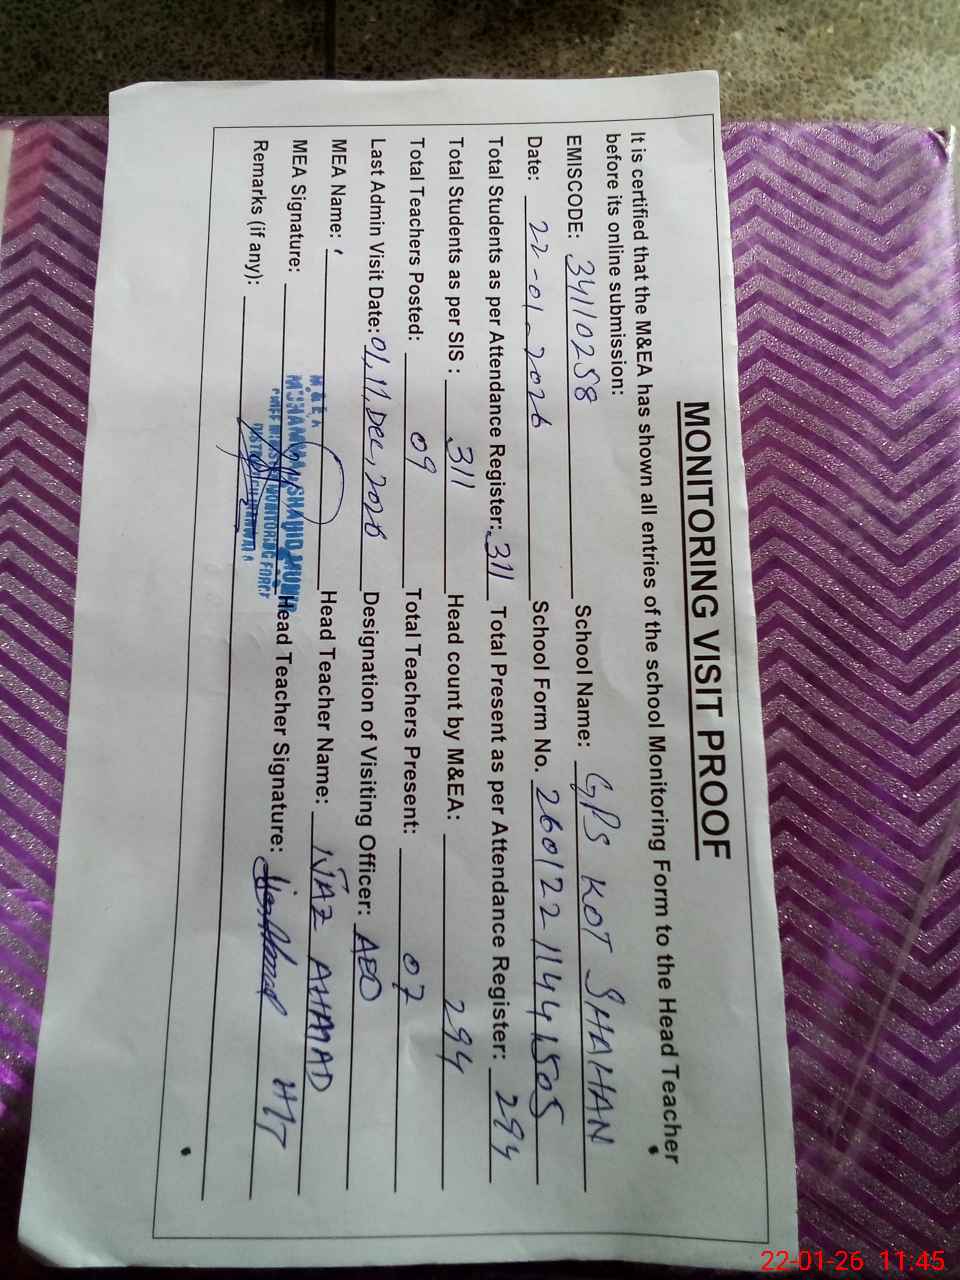 MONITORING VISIT PROOF
It is certified that the M&EA has shown all entries of the school Monitoring Form to the Head Teacher
before its online submission:
EMISCODE: 34110258 School Name: GPS KOT SHAHAN
Date: 22-01-2026 School Form No. 260122114441505
Total Students as per Attendance Register: 311 Total Present as per Attendance Register: 294
Total Students as per SIS : 311 Head count by M&EA: 294
Total Teachers Posted: 09 Total Teachers Present: 07
Last Admin Visit Date: 01,11,Dec,2026 Designation of Visiting Officer: AEO
MEA Name: Head Teacher Name: NAZ AHMAD
MEA Signature: Head Teacher Signature: HT
Remarks (if any):
M.& E.A
MUHAMMAD SHAHID MUNIR
CHIEF MINISTER MONITORING FORCE
22-01-26 11:45